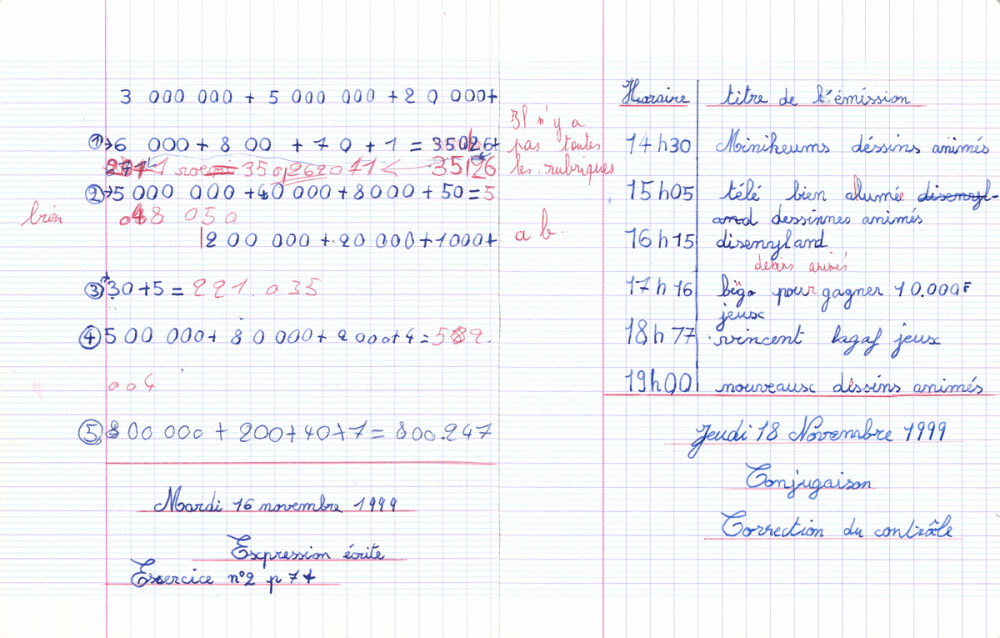 3 000 000 + 5 000 000 + 20 000 +
① → 6 000 + 8 00 + 70 + 1 = 35026 +
1 350,262071 ← 35126
② → 5 000 000 + 40 000 + 8000 + 50 = 5
bien 048 050
200 000 + 20 000 + 1000 +
③ 30 + 5 = 221.035
④ 500 000 + 80 000 + 2 000 + 4 = 582.
004
⑤ 800 000 + 200 + 40 + 7 = 800.247
Mardi 16 novembre 1999
Expression écrite
Exercice n°2 p 74
Il n'y a
pas toutes
les rubriques
a b.
Horaire titre de l'émission
14h30 Minikeums déssins animés
15h05 télé bien allumée disenyl-
and dessinnes animés
16h15 disenyland
dessins animés
17h16 bigo pour gagner 10.000F
jeux
18h77 vincent lagaf jeux
19h00 nouveaux dessins animés
Jeudi 18 Novembre 1999
Conjugaison
Correction du contrôle